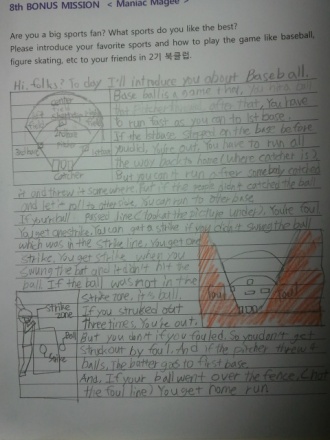 8th BONUS MISSION < Maniac Magee >
Are you a big sports fan? What sports do you like the best?
Please introduce your favorite sports and how to play the game like baseball,
figure skating, etc to your friends in 2기 북클럽.
Hi, folks? To day I'll introduce you about Baseball.
center
Base ball is a game that, You
that, You have
to run fast as you can to 1st base.
If the
on the base before
you did. You're out. You have to run all
the way back to home (where catcher is)
catcher
But you can't run after somebody catched
it and throw it somewhere. But if the
catched the ball
and let it roll to other side. You can run to other base.
If your ball passed line (look at the picture under). You're foul
You get one strike. You can get a strike if you didn't swing the ball
which was in the strike line. You get one
strike. You get strike when you
swung the bat and it didn't hit the
ball. If the ball was not in the
strike zone, it's ball.
If you striked out
three times. You're out.
But you can't if you fouled. So you don't get
struck out by foul. And if the pitcher threw 4
balls, the batter goes to first base.
And, If your ball went over the fence,
the foul line) You get home run
strike
zone
Ball
foul
foul